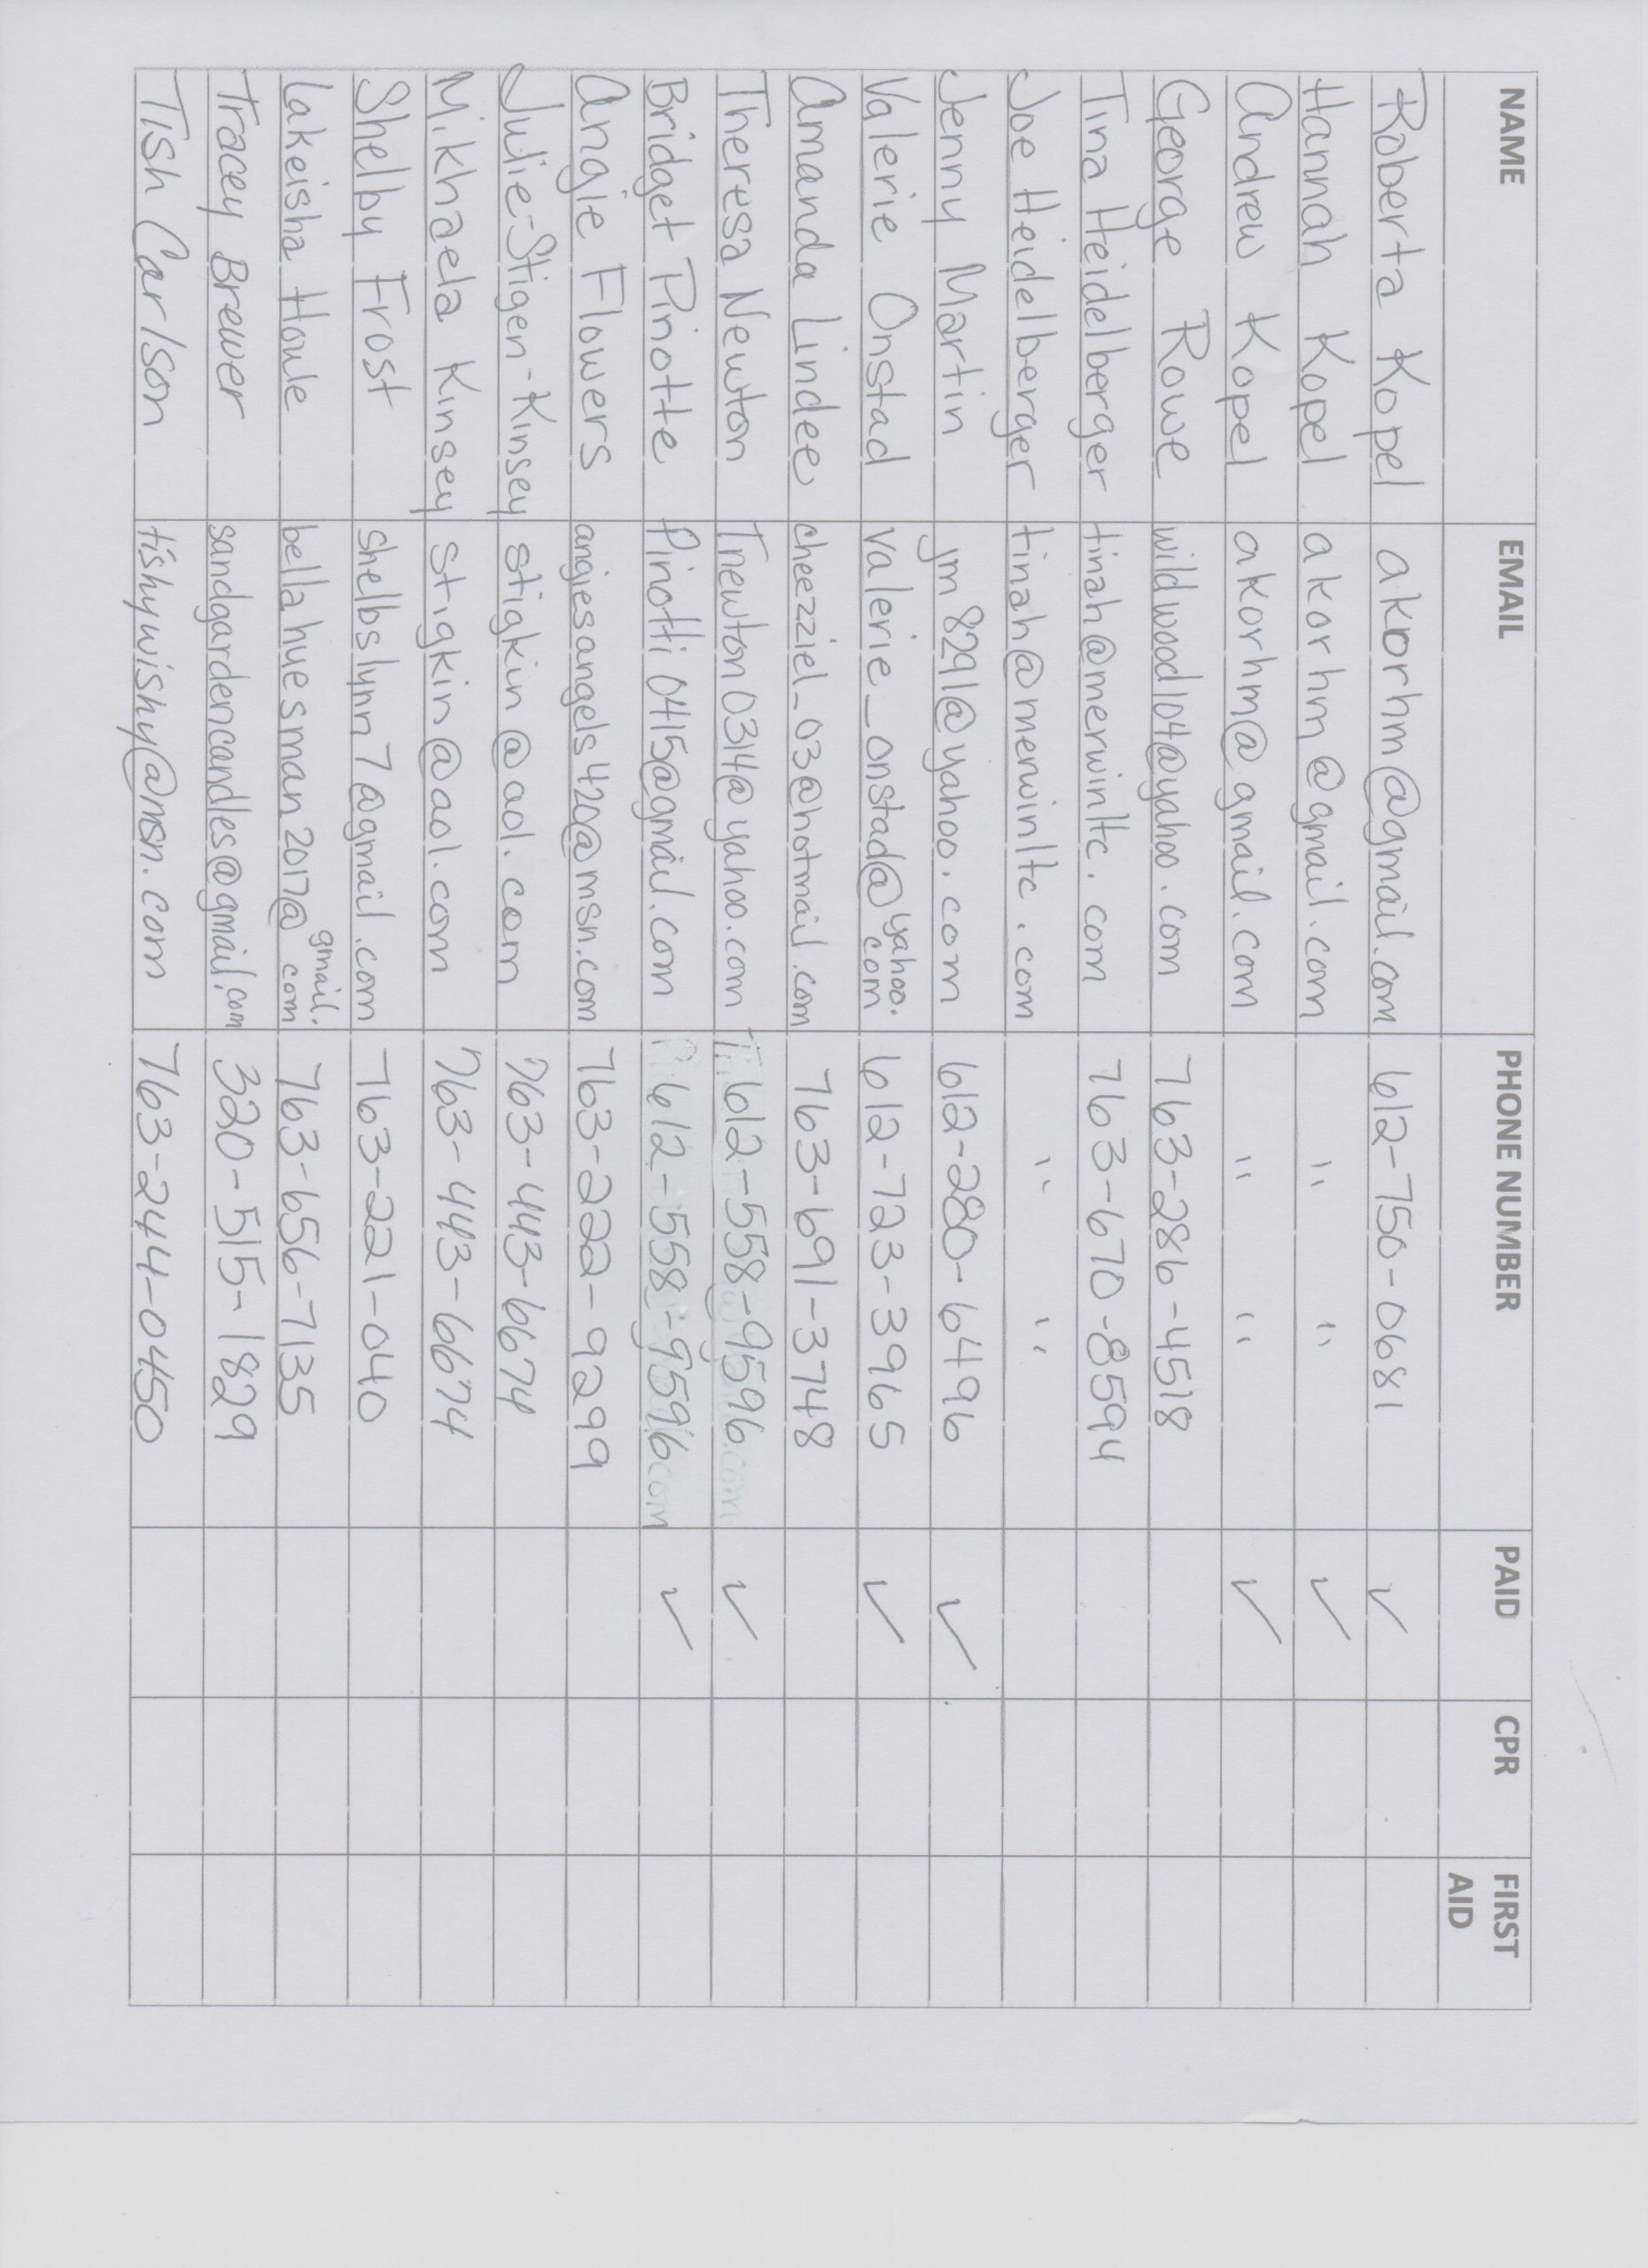 NAME EMAIL PHONE NUMBER PAID CPR FIRST AID
Roberta Kopel akorhm@gmail.com 612-750-0681 ✓
Hannah Kopel akorhm@gmail.com " " ✓
Andrew Kopel akorhm@gmail.com " " ✓
George Rowe wildwood104@yahoo.com 763-286-4518
Tina Heidelberger tinah@merwinltc.com 763-670-8594
Joe Heidelberger tinah@merwinltc.com " "
Jenny Martin jm8291@yahoo.com 612-280-6496 ✓
Valerie Onstad valerie_onstad@yahoo.com 612-723-3965 ✓
Amanda Lindee cheezziel_03@hotmail.com 763-691-3748
Theresa Newton Tnewton0314@yahoo.com 612-558-9596 ✓
Bridget Pinotte Pinotti0415@gmail.com 612-558-9596 ✓
Angie Flowers angiesangels420@msn.com 763-222-9299
Julie-Stigen-Kinsey stigkin@aol.com 763-443-6674
Mikhaela Kinsey stigkin@aol.com 763-443-6674
Shelby Frost shelbslynn7@gmail.com 763-221-040
Lakeisha Houle bellahuesman2017@gmail.com 763-656-7135
Tracey Brewer sandgardencandles@gmail.com 320-515-1829
Tish Carlson tishywishy@msn.com 763-244-0450